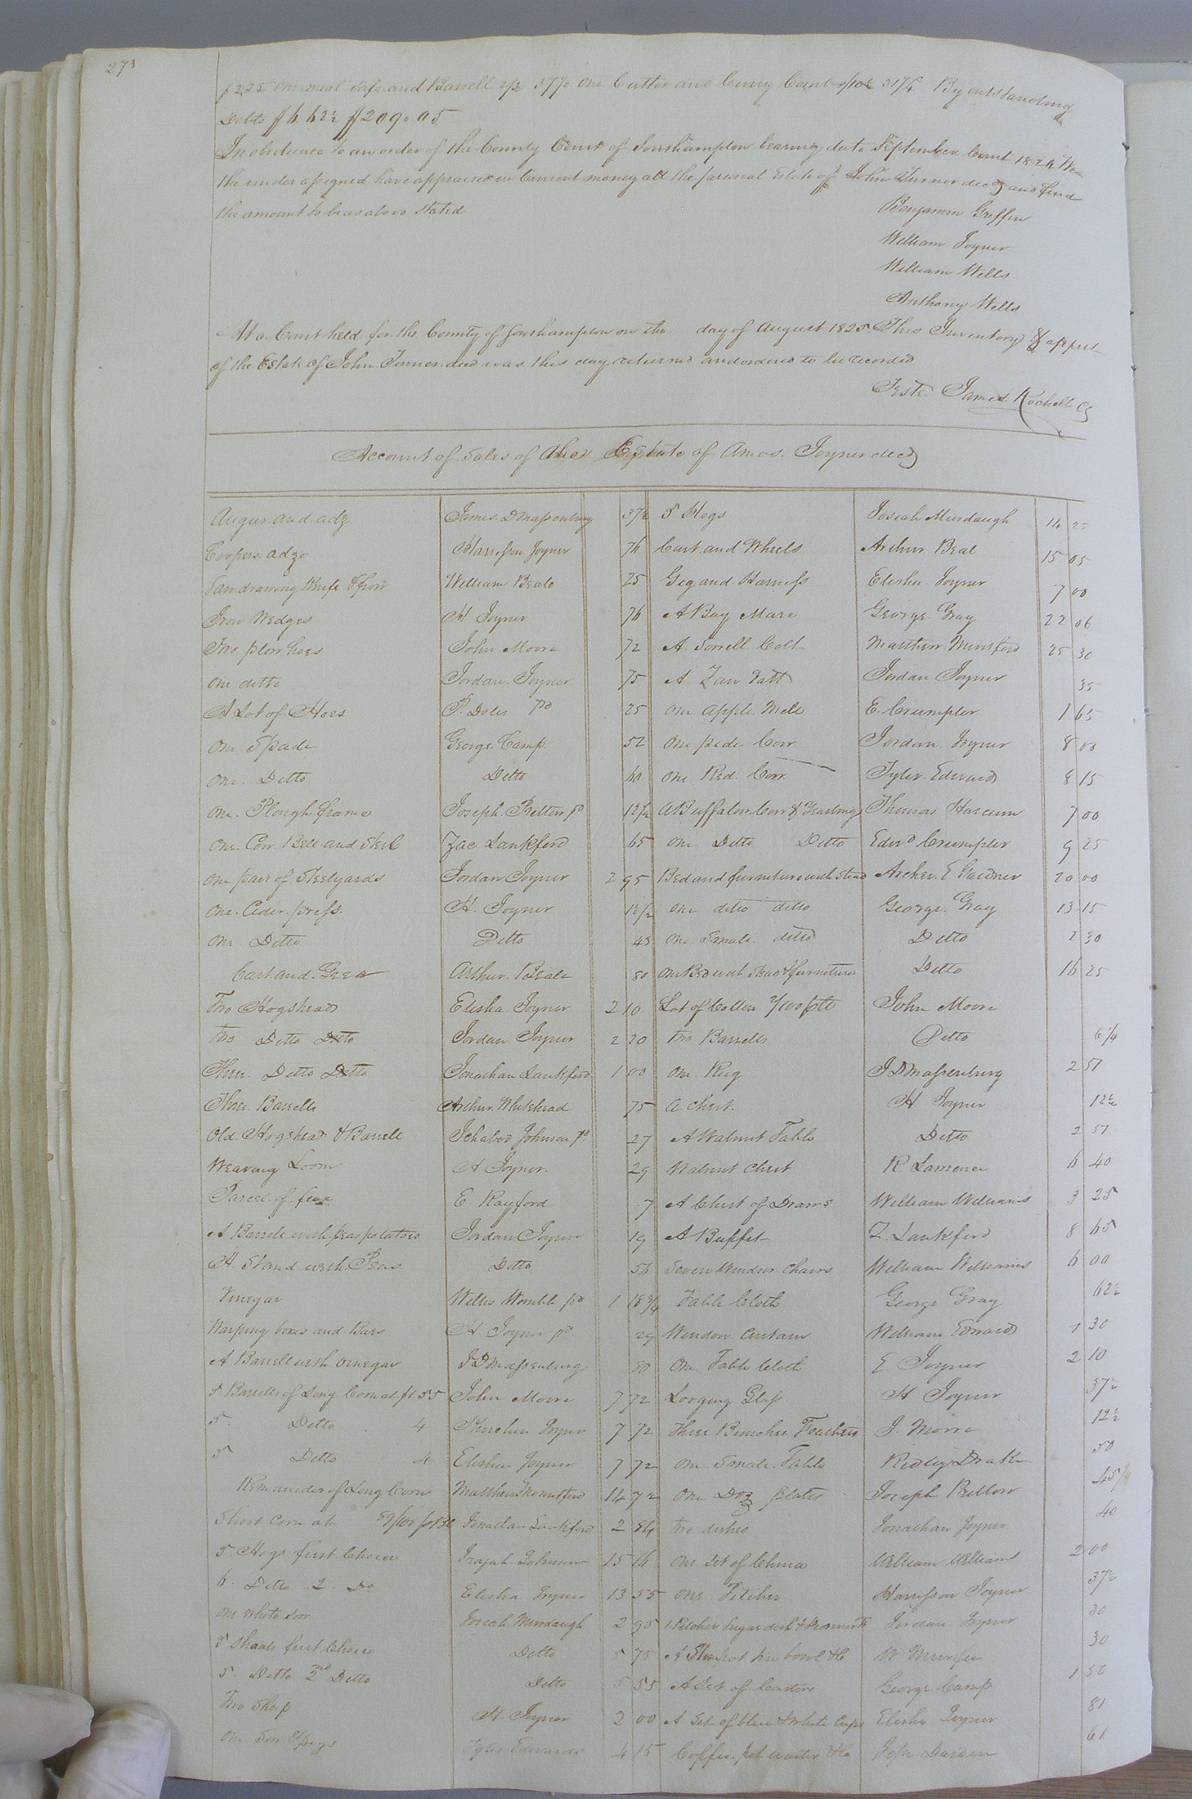 273
$2.25 one meal Safe and Barrell 2/3 37½ one Cutter and Curry Comb 31¼ By outstanding
Debts $6 62½ $209.05
In obedience to an order of the County Court of Southampton bearing date September Court 1824 We
the under assigned have appraised in Current money all the personal Estate of John Turner decd and find
the amount to be as above Stated
Benjamin Griffin
William Joyner
William Wells
Anthony Wells
At a Court held for the County of Southampton on the day of August 1825 This Inventory & appst
of the Estate of John Turner decd was this day returned and ordered to be recorded
Teste James Rochelle CC
Account of Sales of the Estate of Amos Joyner decd
Augur and adz James D Massenburg 37½
Coopers adze Harrison Joyner 76
Tan drawing Knife & William Beale 25
Iron Wedges H Joyner 76
Two plow hoes John Moore 72
one ditto Jordan Joyner 75
A Lot of Hoes P. Doles pd 25
One Spade George Camp 52
One Ditto Ditto 60
One Plough frame Joseph Bretton pd 12½
One Cow Bell and Zac Lankford 65
One pair of Steelyards Jordan Joyner 2 95
One Cider press H Joyner 12½
One Ditto Ditto 43
Cart and Gear Arthur Beale 80
Two Hogsheads Elisha Joyner 2 10
Two Ditto Ditto Jordan Joyner 2 20
Three Ditto Ditto Jonathan Lankford 1 00
Three Barrells Arthur Whitehead 75
Old Hogshead & Barrell Ichabod Johnson pd 27
Weaving Loom H Joyner 29
Parcel of flax E Rayford 7
A Barrell with peas potatoes Jordan Joyner 19
A Stand with Peas Ditto 56
Vinegar Willis Womble pd 1 18¾
Warping boxes and Bars H Joyner pd 29
A Barrell with vinegar J D Massenburg 80
5 Barrells of Long Corn at $1.55 John Moore 7 72
5 Ditto 4 Joyner 7 72
5 Ditto 4 Elisha Joyner 7 72
Remainder of Long Corn Matthew 14 72
Short Corn at Jonathan Lankford 2 84
5 Hogs first Choice Josiah Johnson 15 16
6 Ditto 2 Do Elisha Joyner 13 55
One white Sow Josiah Murdaugh 2 95
5 Shoats first Choice Ditto 5 75
5 Ditto 2nd Ditto Ditto 5 55
Two Shop H Joyner 2 00
One Sow & pigs Tyler Edwards 4 15
5 Hogs Josiah Murdaugh 14 25
Cart and Wheels Arthur Beal 15 05
Gig and Harness Elisha Joyner 7 00
A Bay Mare George Gray 22 06
A Sorrell Colt Matthew 25 30
A Tan Vatt Jordan Joyner 35
One Apple Mill E. Crumpler 1 65
One pide Cow Jordan Joyner 8 00
One Red Cow Tyler Edwards 8 15
A Buffalow Cow & Yearling Thomas Harcum 7 00
One Ditto Ditto Edwd Crumpler 9 25
Bed and furniture with Stead Archer E Gardner 20 00
One ditto ditto George Gray 13 15
One Small ditto Ditto 2 30
One Bed with Stead & furniture Ditto 16 25
Lot of Cotton John Moore
Two Barrells Ditto 6¼
One Keg J D Massenburg 2 51
A Chest H Joyner 12½
A Walnut Table Ditto 2 51
Walnut Chest R Lawrence 6 40
A Chest of Draws William Williams 3 25
A Buffet Z. Lankford 8 65
Seven Windsor Chairs William Williams 6 00
Table Cloth George Gray 62½
Window Curtain William Edwards 1 30
One Table Cloth E Joyner 2 10
Looking Glass H Joyner 37½
Three J. Moore 12½
One Small Table Ridley Drake 50
One Doz plates Joseph
Two dishes Jonathan Joyner 40
One Set of China William Williams 2 00
One Pitcher Harrison Joyner 37½
1 Pitcher Sugar dish & Jordan Joyner 20
A Teapot bowl &c W 30
A Set of Castors George Camp 1 50
A Set of blue & white Cups Elisha Joyner 81
Coffee pot waiter &c Darden 61